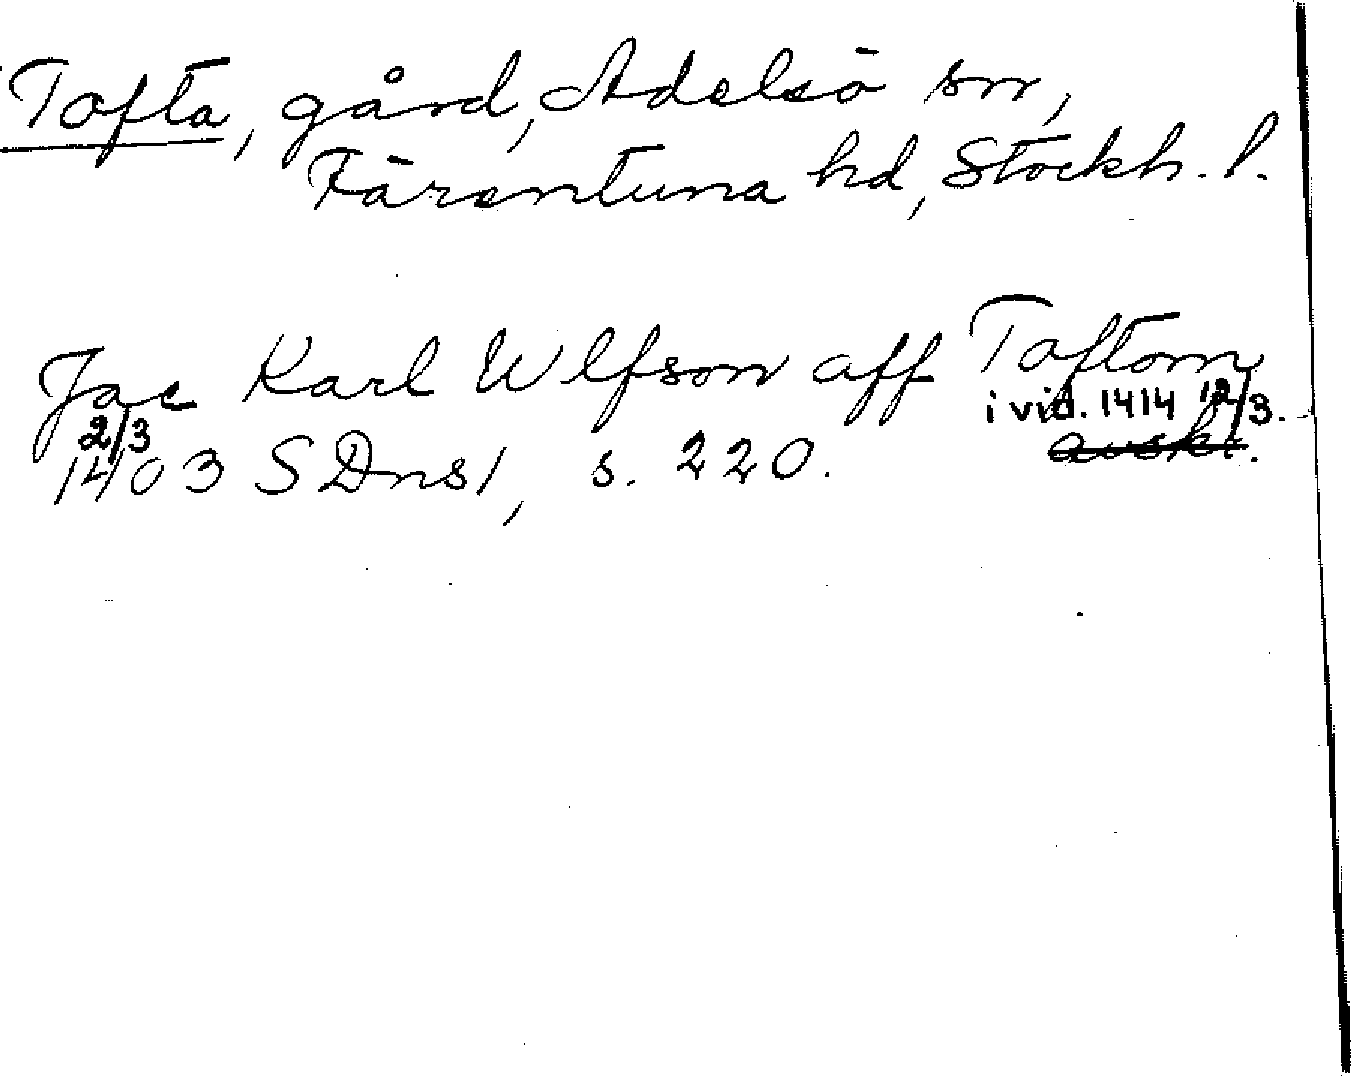 Tofta, gård, Adelsö sn,
Färentuna hd, Stockh. l.
Jac Karl Wlfson aff Toftom
i vid. 1414 12/3.
2/3
1403 SDns1, s. 220. avskr.